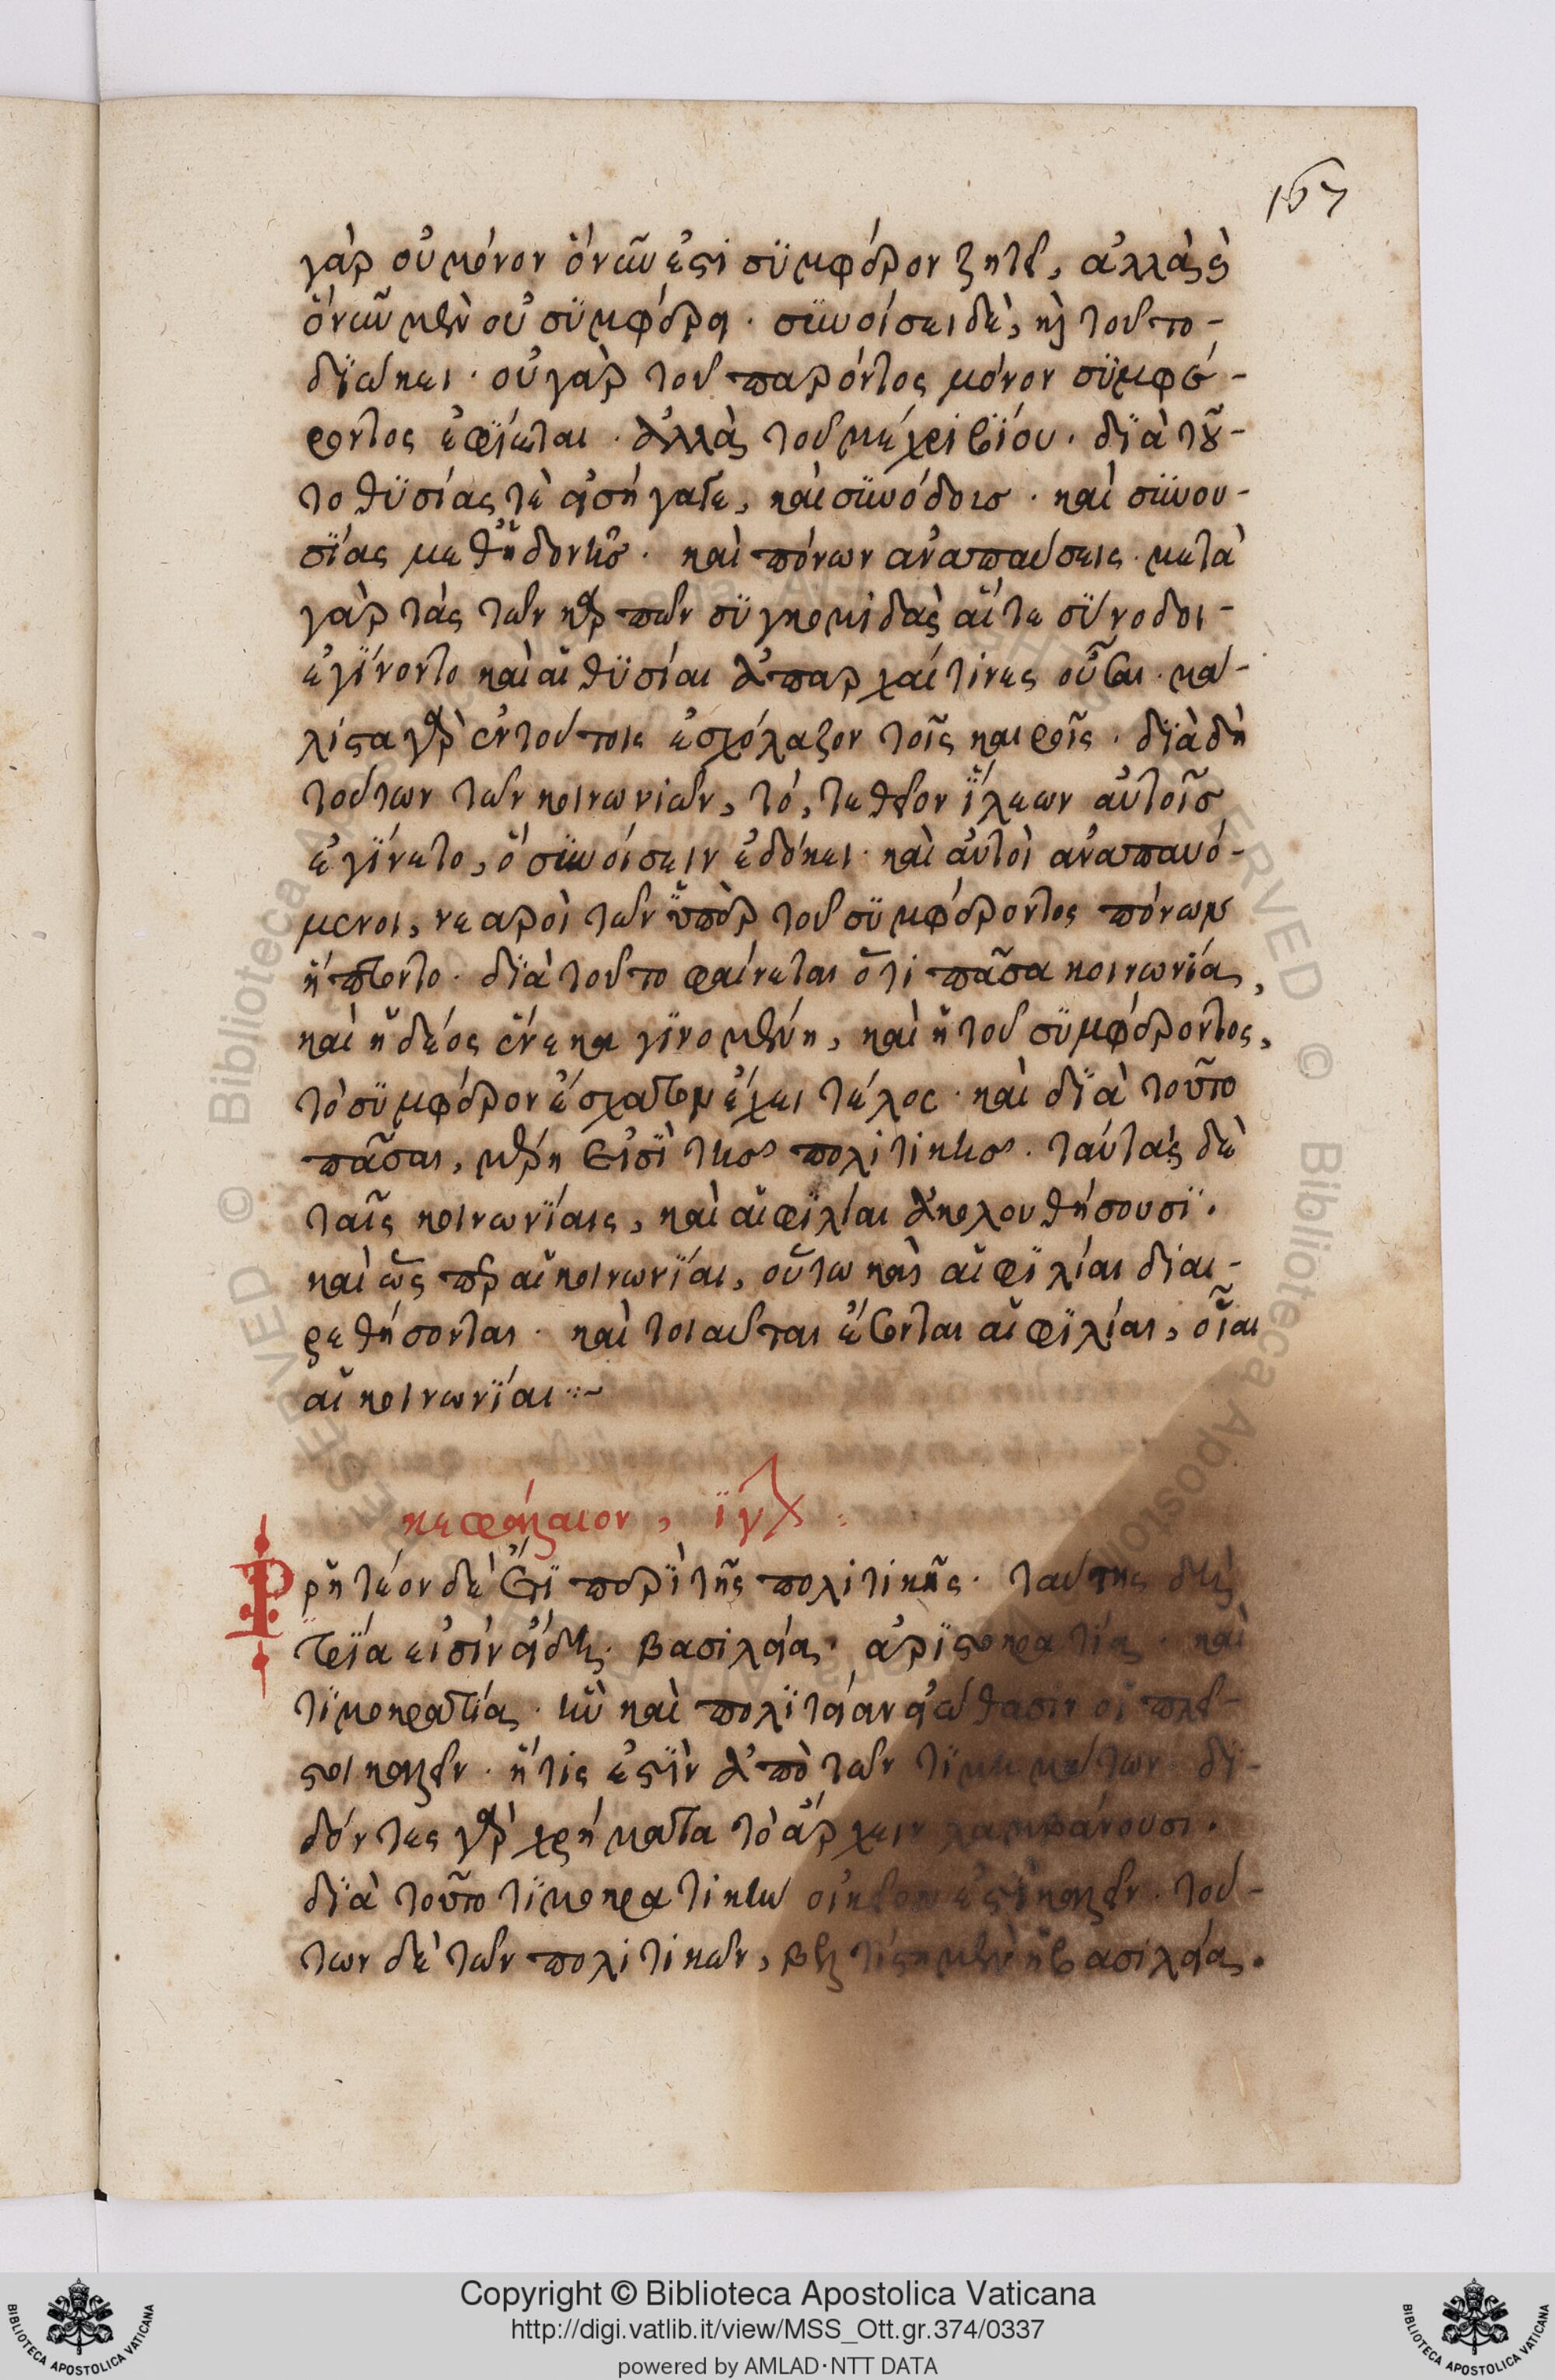 167
γὰρ οὐ μόνον ὃ νῦν ἐστὶ συμφέρον ζητεῖ, ἀλλὰ καὶ
ὃ νῦν μὲν οὐ συμφέρει. συνοίσει δὲ, καὶ τοῦτο
διώκει. οὐ γὰρ τοῦ παρόντος μόνον συμφέ-
ροντος ἐφίεται. ἀλλὰ τοῦ μέχρι βίου. διὰ τοῦ-
το θυσίας τὲ εἰσήγαγε, καὶ συνόδοις. καὶ συνου-
σίας μεθ' ἡδονῆς. καὶ πόνων ἀναπαύσεις. μετὰ
γὰρ τὰς τῶν καρπῶν συγκομιδὰς αἵ τε σύνοδοι
ἐγίνοντο καὶ αἱ θυσίαι ἀπαρχαί τινες οὖσαι. μά-
λιστα γὰρ ἐν τούτοις ἐσχόλαζον τοῖς καιροῖς. διὰ δὴ
τούτων τῶν κοινωνιῶν, τό, τε θεῖον ἵλεων αὐτοῖς
ἐγίνετο, ὃ συνοίσειν ἐδόκει. καὶ αὐτοὶ ἀναπαυό-
μενοι, νεαροὶ τῶν ὑπὲρ τοῦ συμφέροντος πόνων
ἥπτοντο. διὰ τοῦτο φαίνεται ὅτι πᾶσα κοινωνία,
καὶ ἡδέος ἕνεκα γινομένη, καὶ ἡ τοῦ συμφέροντος,
τὸ συμφέρον ἔσχατον ἔχει τέλος. καὶ διὰ τοῦτο
πᾶσαι, μέρη εἰσὶ τῆς πολιτικῆς. ταύταις δὲ
ταῖς κοινωνίαις, καὶ αἱ φιλίαι ἀκολουθήσουσι.
καὶ ὥσπερ αἱ κοινωνίαι, οὕτω καὶ αἱ φιλίαι διαι-
ρεθήσονται. καὶ τοιαῦται ἔσονται αἱ φιλίαι, οἷαι
αἱ κοινωνίαι :~
κεφάλαιον, ιγον
Ρρητέον δὲ ἔτι περὶ τῆς πολιτικῆς. ταύτης δὲ
τρία εἰσὶν εἴδη. βασιλεία. ἀριστοκρατία. καὶ
τιμοκρατία. ἣν καὶ πολιτείαν εἰώθασιν οἱ πλεῖ-
στοι καλεῖν. ἥτις ἐστὶν ἀπὸ τῶν τιμημάτων. δι-
δόντες γὰρ χρήματα τὸ ἄρχειν λαμβάνουσι.
διὰ τοῦτο τιμοκρατικὴν οἰκεῖον ἐστὶ καλεῖν. τού-
των δὲ τῶν πολιτικῶν, βελτίστη μὲν ἡ βασιλεία.
Copyright © Biblioteca Apostolica Vaticana
http://digi.vatlib.it/view/MSS_Ott.gr.374/0337
powered by AMLAD·NTT DATA